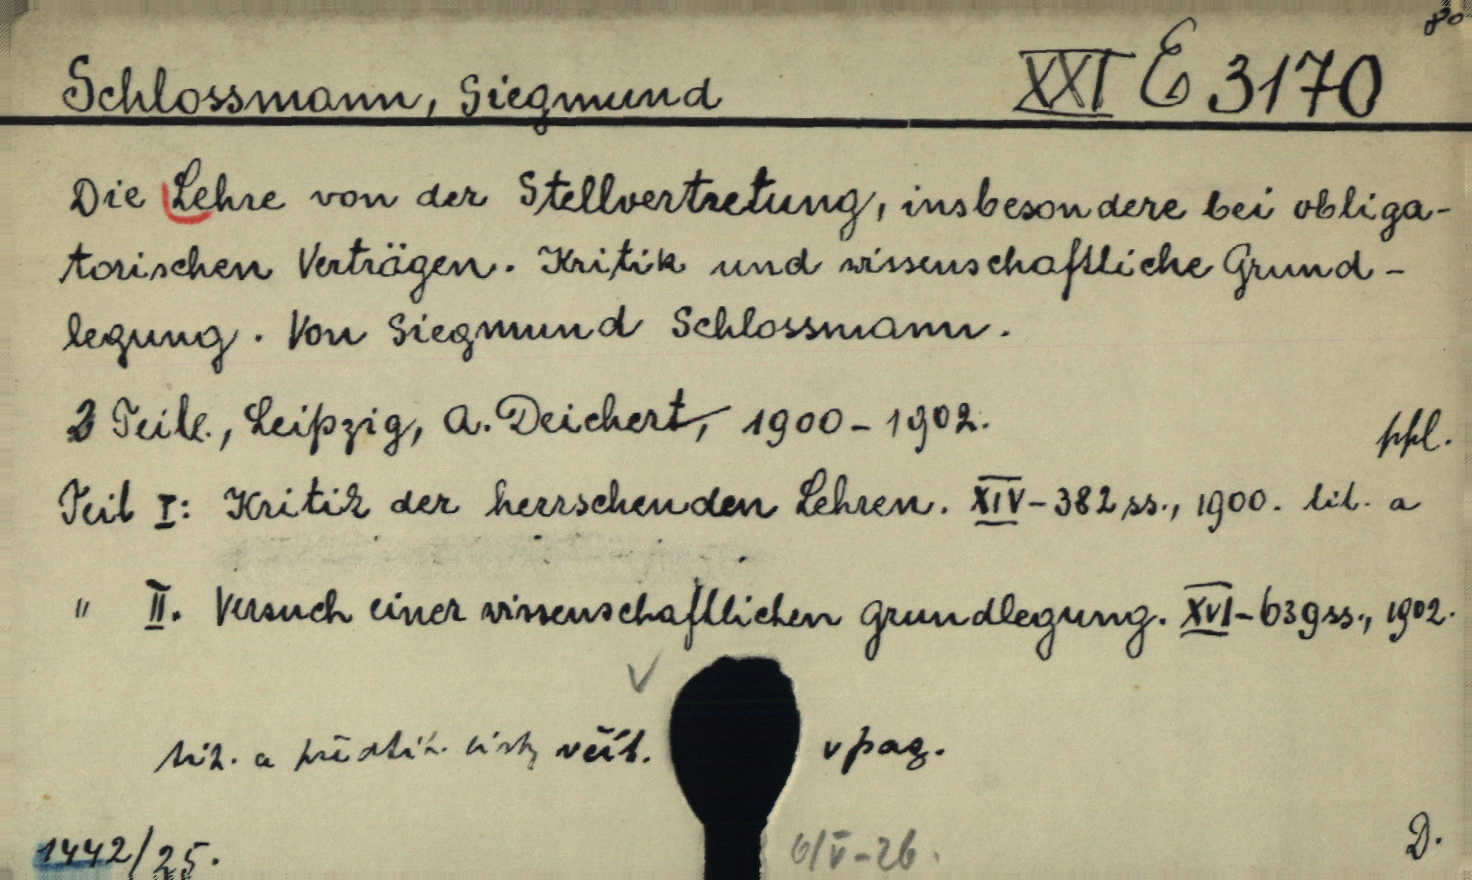 8o
Schlossmann, Siegmund XXI E 3170
Die Lehre von der Stellvertretung, insbesondere bei obliga-
torischen Verträgen. Kritik und wissenschaftliche Grund-
legung. Von Siegmund Schlossmann.
2 Teile., Leipzig, A. Deichert, 1900-1902.
ppl.
Teil I: Kritik der herrschenden Lehren. XIV-382 ss., 1900. tit. a
" II. Versuch einer wissenschaftlichen Grundlegung. XVI-639 ss., 1902.
tit. a listy včít. v pag.
1442/25. 6/V-26. D.